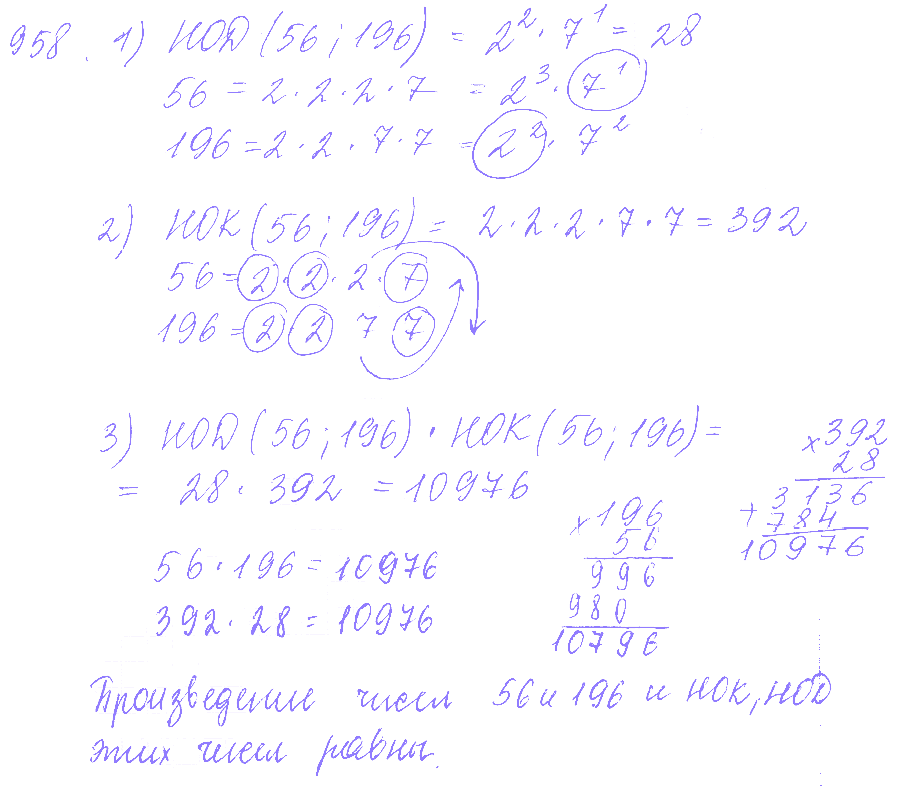 958. 1) НОД (56; 196) = 2² · 7¹ = 28
56 = 2 · 2 · 2 · 7 = 2³ · 7¹
196 = 2 · 2 · 7 · 7 = 2² · 7²
2) НОК (56; 196) = 2 · 2 · 2 · 7 · 7 = 392
56 = 2 · 2 · 2 · 7
196 = 2 2 7 7
3) НОД (56; 196) · НОК (56; 196) =
= 28 · 392 = 10976
× 392
28
3136
+ 784
10976
× 196
56
996
980
10796
56 · 196 = 10976
392 · 28 = 10976
Произведение чисел 56 и 196 и НОК, НОД
этих чисел равны.